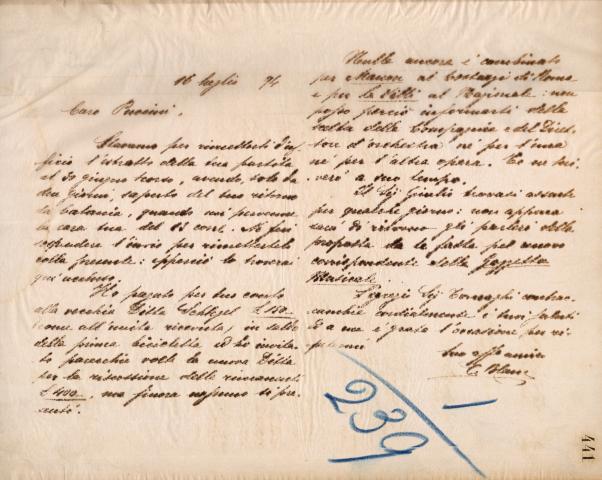 16 luglio 94
Caro Puccini,
Stavamo per rimetterti d'uf-
ficio l'estratto della tua partita
al 30 giugno scorso, avendo, solo da
due giorni, saputo del tuo ritorno
da Catania, quando mi pervenne
la cara tua del 13 corr. Ne feci
sospendere l'invio per rimettertelo
colla presente: epperciò lo troverai
qui unito.
Ho pagato per tuo conto
alla vecchia Ditta Schlegel L 150
come all'unita ricevuta, in saldo
della prima bicicletta ed ho invita-
to parecchie volte la nuova Ditta
per la riscossione delle rimanenti
L 400, ma finora nessuno si pre-
sentò.
Nulla ancora è combinato
per Manon al Costanzi di Roma
e per le Villi al Nazionale: non
posso perciò informarti della
scelta delle Compagnie e del Diret-
tore d'orchestra nè per l'una
nè per l'altra opera. Te ne scri-
verò a suo tempo.
Il Sig Giulio trovasi assente
per qualche giorno: non appena
sarà di ritorno gli parlerò della
proposta da te fatta pel nuovo
corrispondente della Gazzetta
Musicale.
Sig Tornaghi contrac-
cambia cordialmente i tuoi saluti
Ed a me è grata l'occasione per ri-
petermi
tuo aff amico
C. Blanc
1
239
441